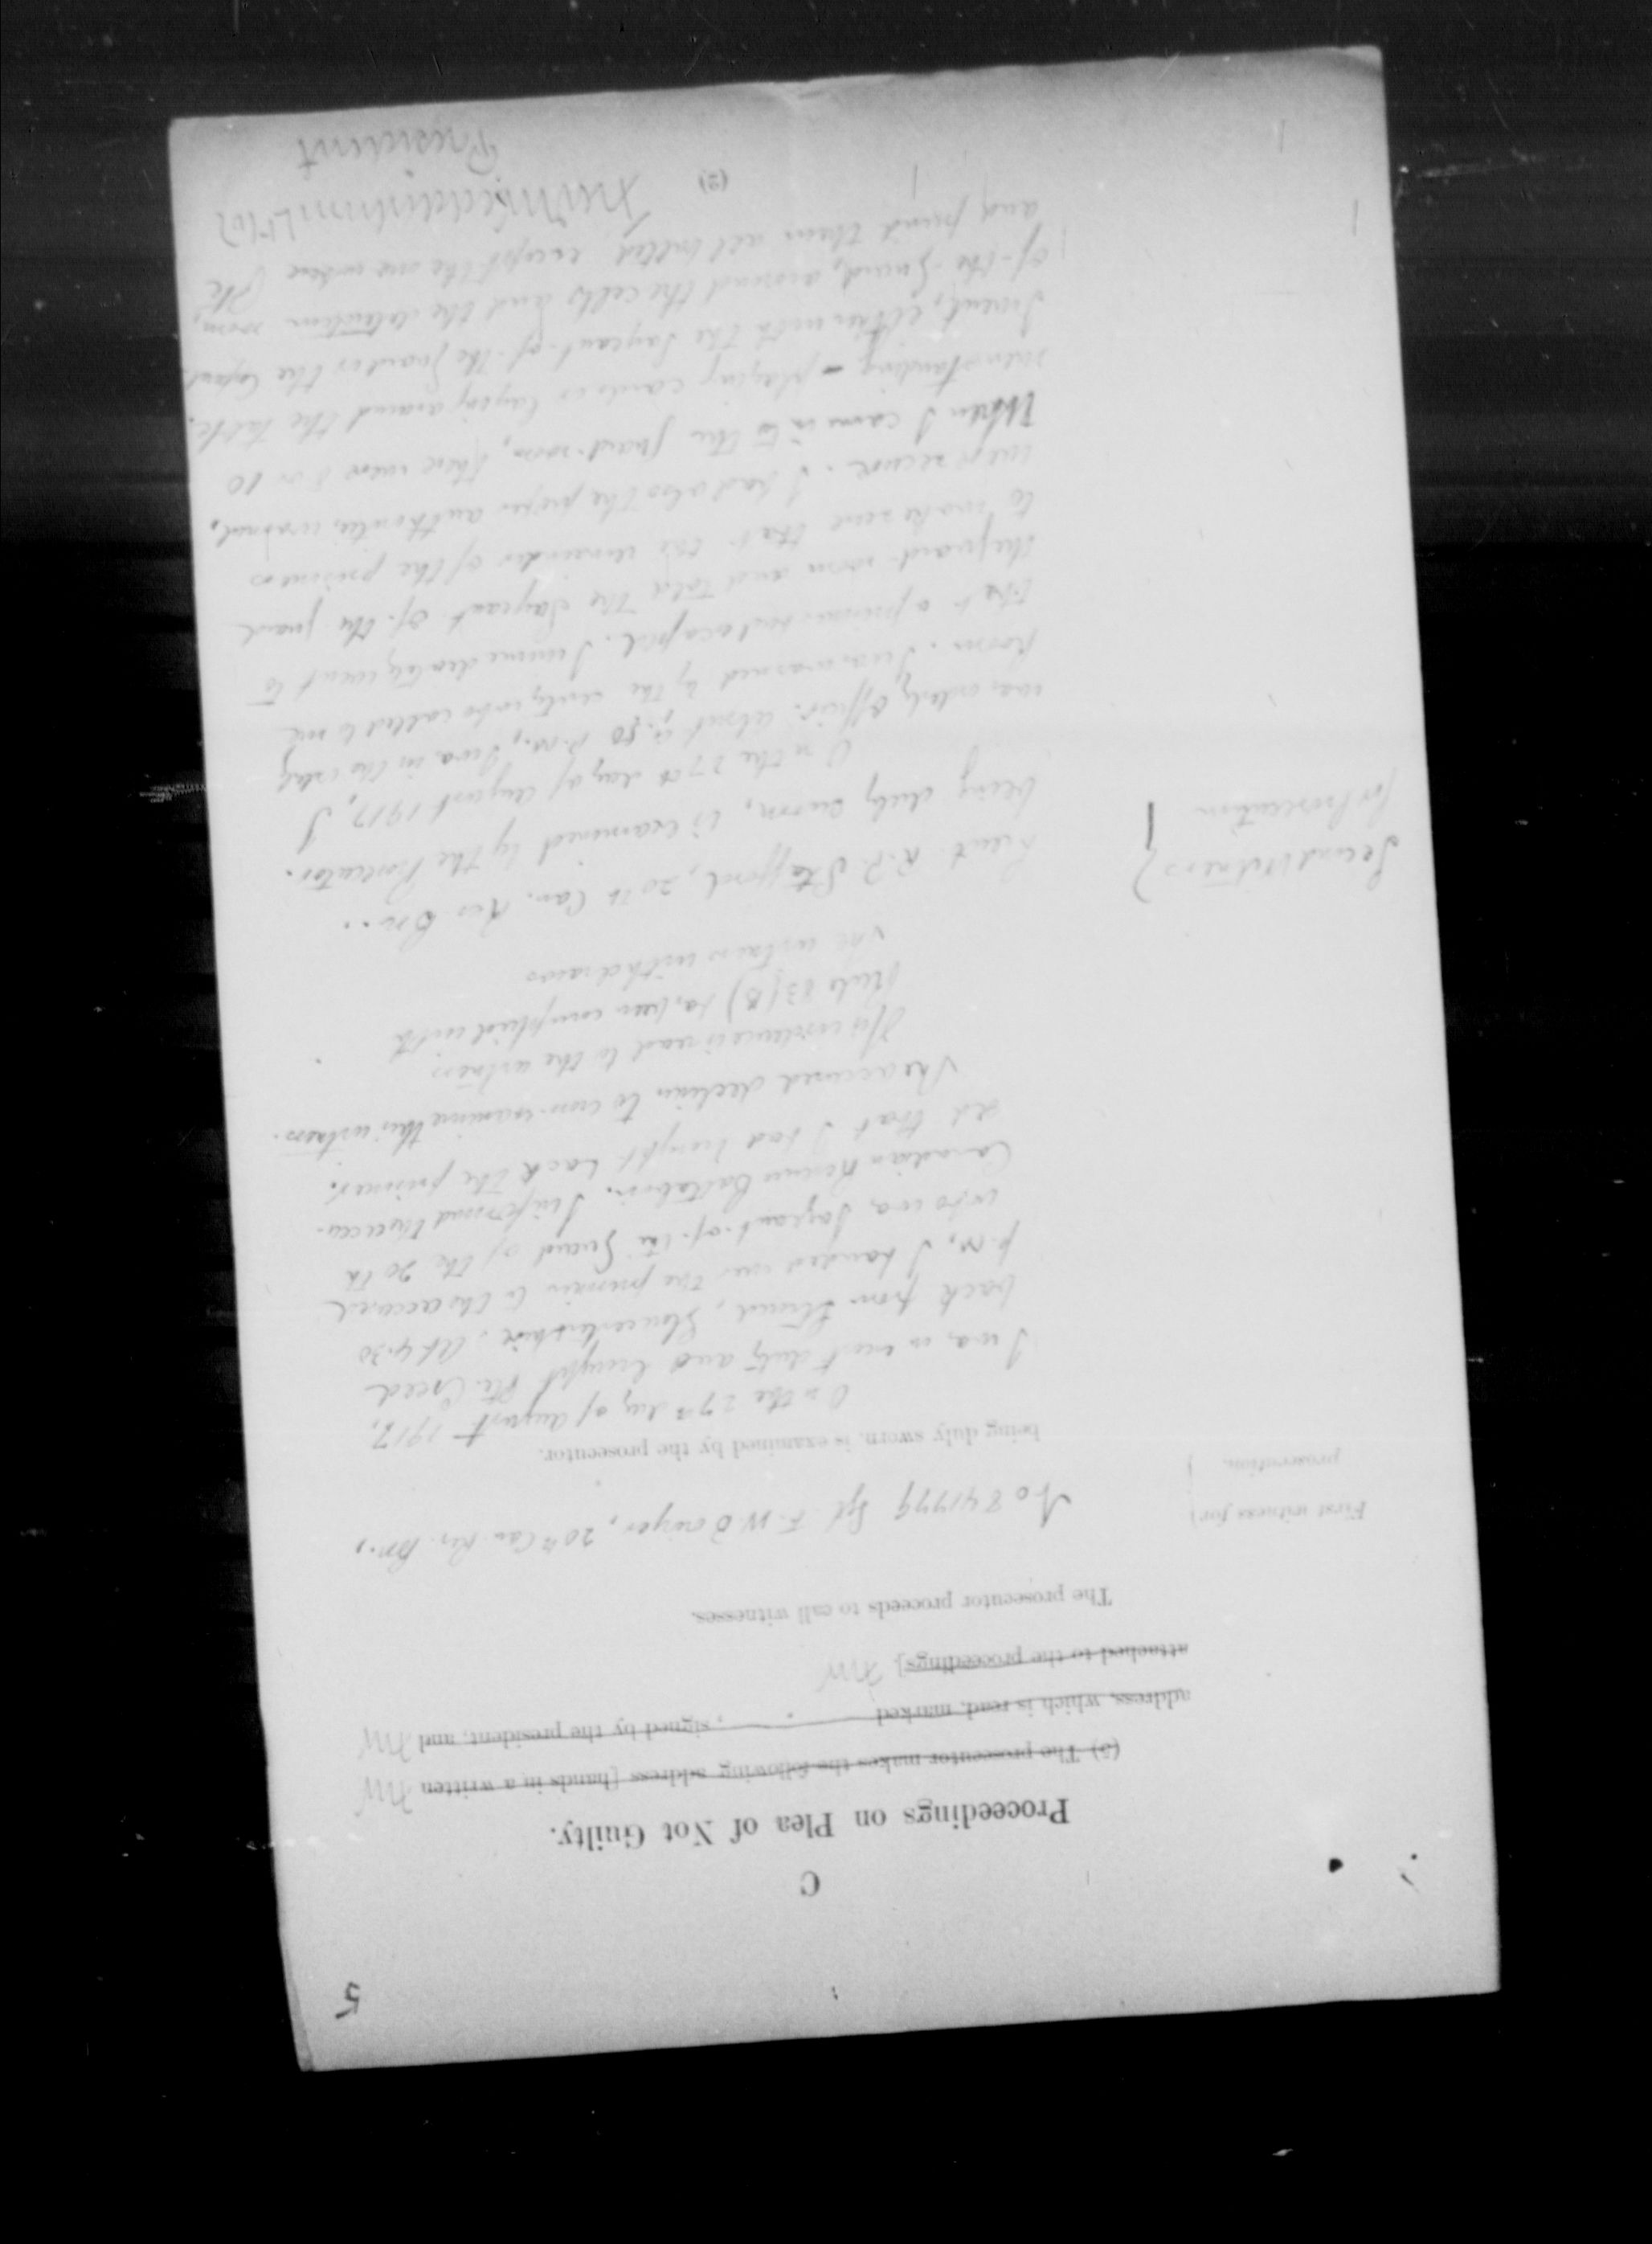 5
C
Proceedings on Plea of Not Guilty.
(3) The prosecutor makes the following address [hands in a written
address, which is read, marked , signed by the president, and
attached to the proceedings].
The prosecutor proceeds to call witnesses.
First witness for
prosecution.
No 841779 Sgt F. W. Dwyer, 20th Can. Res. Bn.,
being duly sworn, is examined by the prosecutor.
On the 27th day of August 1917,
I was on escort duty and brought Pte. Creed
back from Stroud, Gloucestershire. At 4.30
p.m., I handed over the prisoner to the accused
who was Sergeant-of-the Guard of the 20th
Canadian Reserve Battalion. I informed the accu-
sed that I had brought back the prisoner.
The accused declines to cross-examine this witness.
His evidence is read to the witness
Rule 83 (B) has been complied with
The witness withdraws
Second Witness
for Prosecution
Lieut. R. P. Stafford, 20th Can. Res Bn..
being duly sworn, is examined by the Prosecutor.
On the 27th day of August 1917, I
was orderly officer. About 9.50 p.m., I was in the orderly
Room. I was warned by the sentry who called to me
that a prisoner had escaped. I immediately went to
the guard-room and told the Sergeant of the guard
to make sure that the remainder of the prisoners
were secure. I had also the proper authorities warned.
When I came into the guard-room, there were 8 or 10
men standing - playing cards or laying around the table.
I went, either with the Sergeant-of-the guard or the Corporal
of-the-Guard, around the cells and the detention room,
and found them all bolted except the one where Pte.
(2)
President